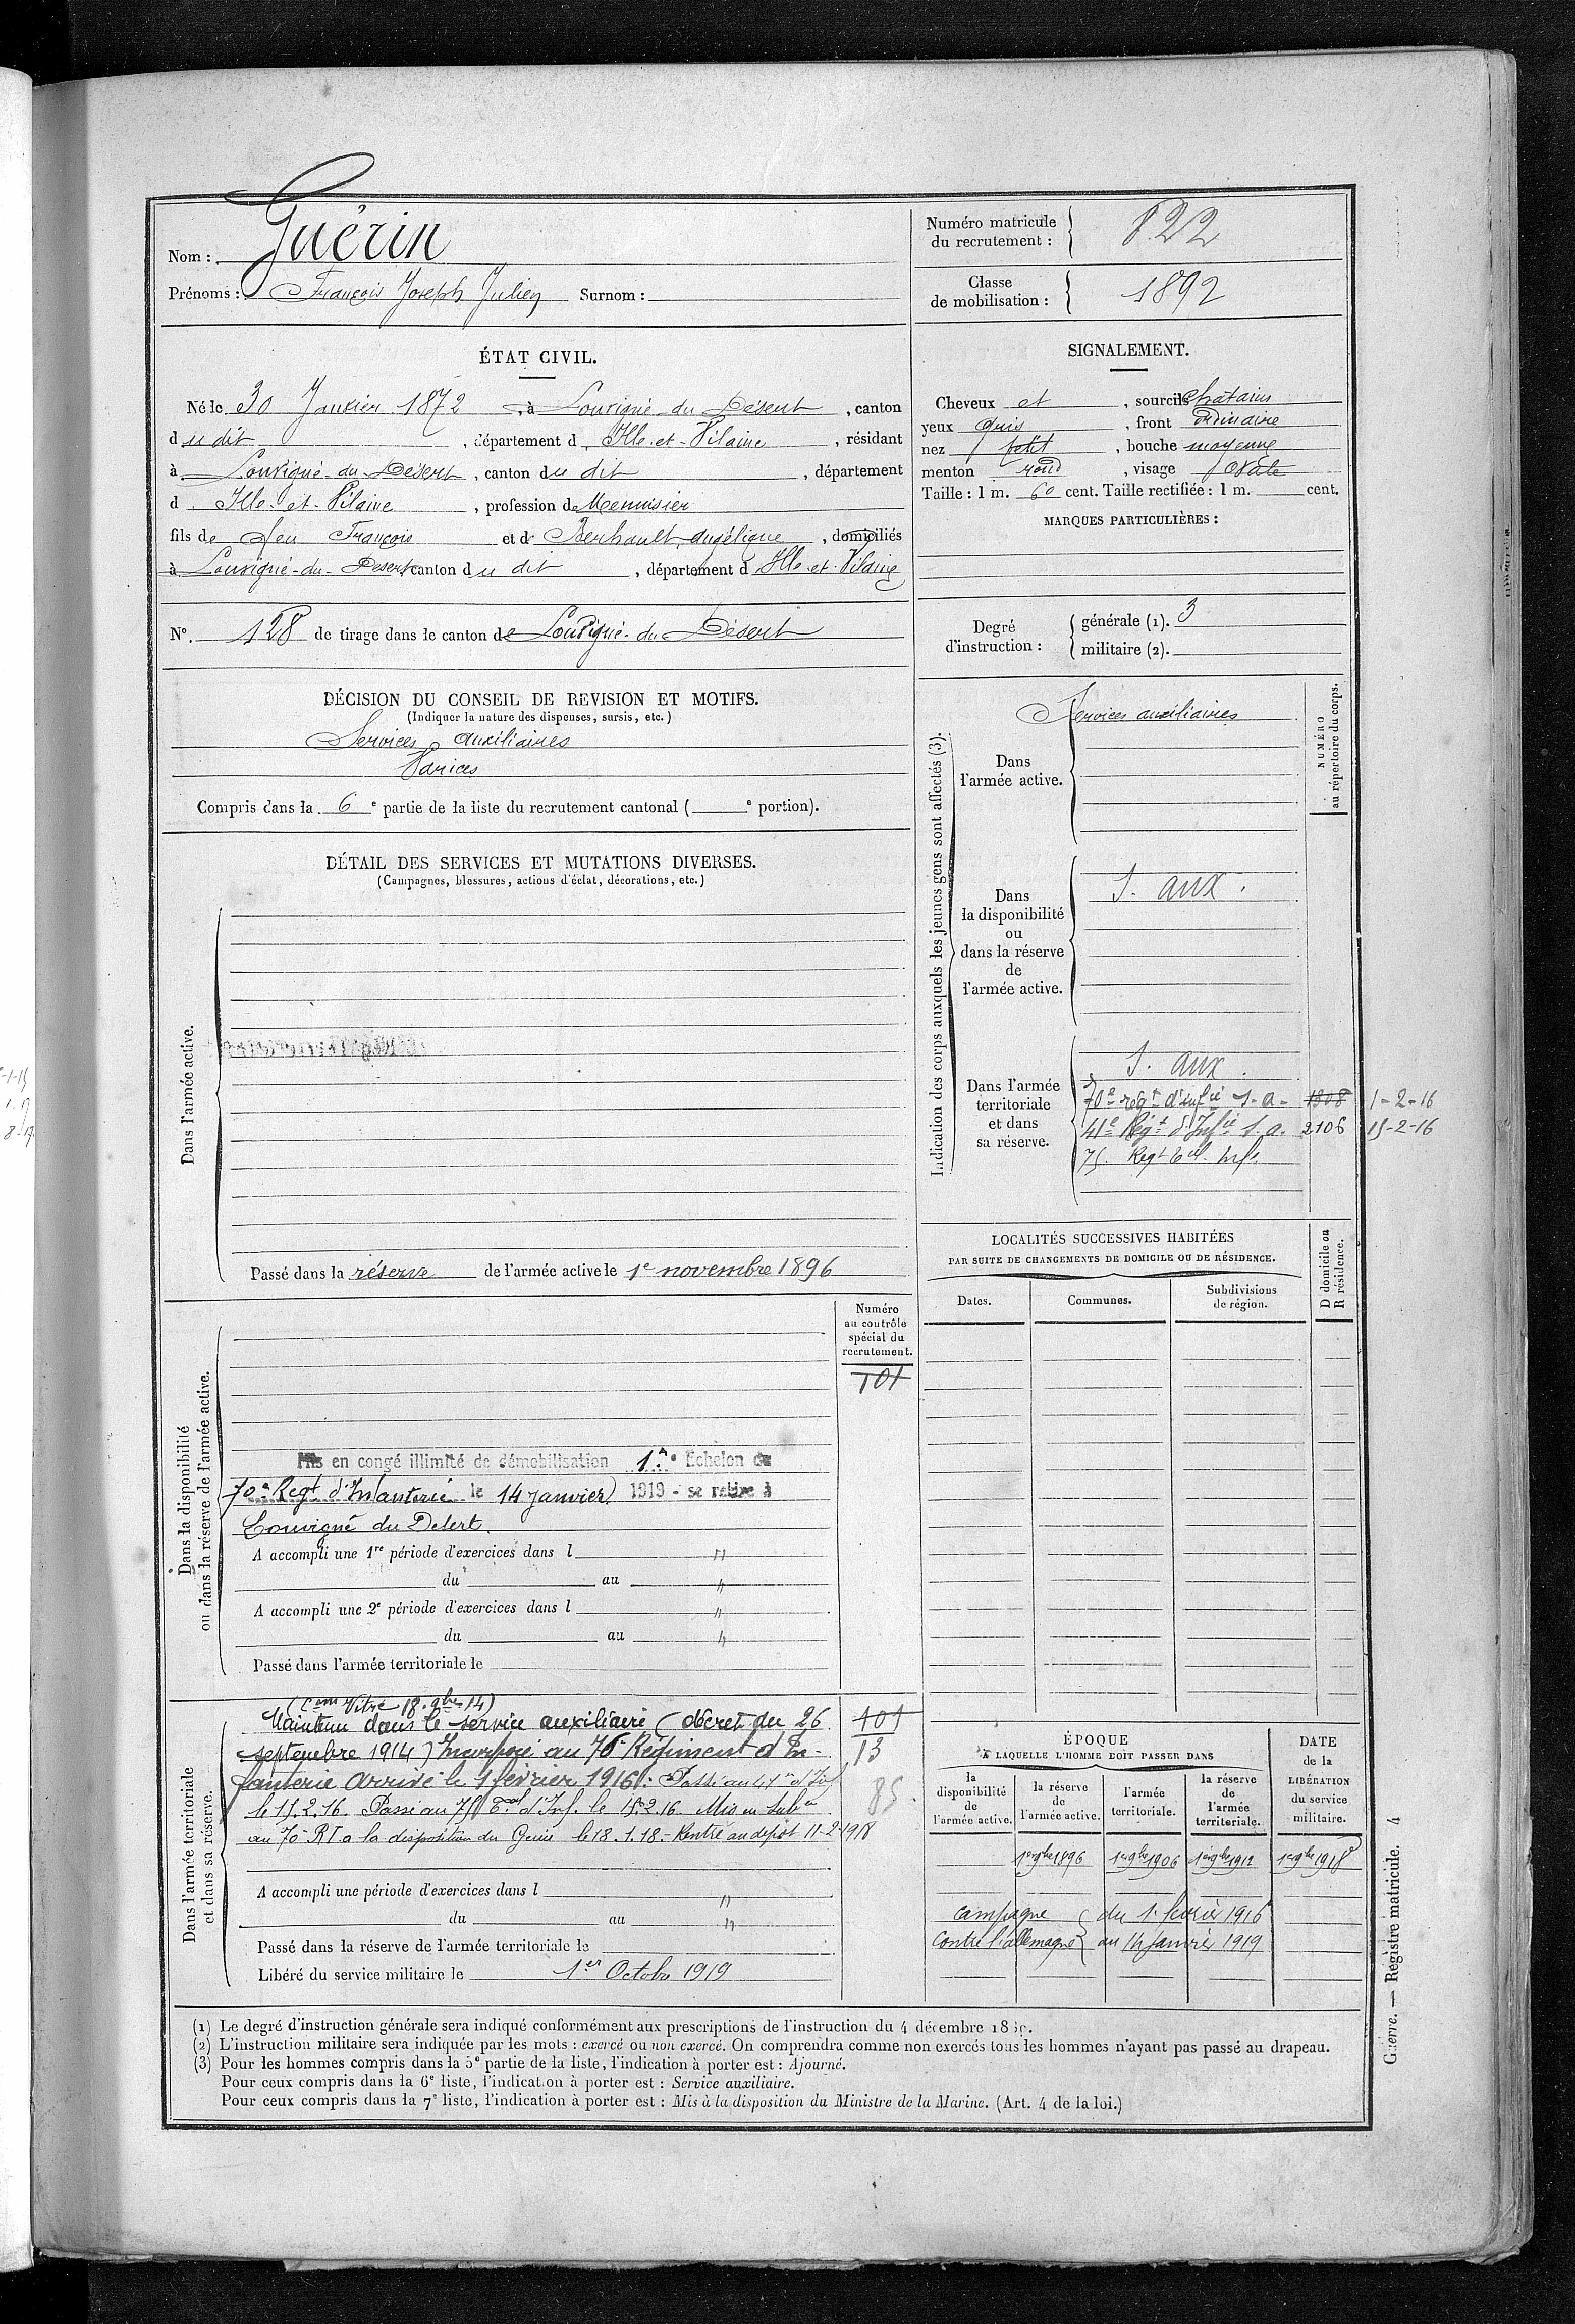 Nom : Guérin
Prénoms : François Joseph Julien Surnom :
Numéro matricule du recrutement : 822
Classe de mobilisation : 1892
ÉTAT CIVIL.
Né le 30 Janvier 1872, à Louvigné-du-Désert, canton
du dit, département d'Ille-et-Vilaine, résidant
à Louvigné-du-Désert, canton du dit, département
d'Ille-et-Vilaine, profession de Menuisier
fils de feu François et de Berhault Angélique, domiciliés
à Louvigné-du-Désert, canton du dit, département d'Ille-et-Vilaine
N°. 128 de tirage dans le canton de Louvigné-du-Désert
SIGNALEMENT.
Cheveux et, sourcils châtains
yeux gris, front ordinaire
nez petit, bouche moyenne
menton rond, visage ovale
Taille : 1 m. 60 cent. Taille rectifiée : 1 m. cent.
MARQUES PARTICULIÈRES :
Degré d'instruction : générale (1). 3
militaire (2).
DÉCISION DU CONSEIL DE REVISION ET MOTIFS.
(Indiquer la nature des dispenses, sursis, etc.)
Services auxiliaires
Varices
Compris dans la 6e partie de la liste du recrutement cantonal ( e portion).
DÉTAIL DES SERVICES ET MUTATIONS DIVERSES.
(Campagnes, blessures, actions d'éclat, décorations, etc.)
Dans l'armée active.
Passé dans la réserve de l'armée active le 1e novembre 1896
Indication des corps auxquels les jeunes gens sont affectés (3).
NUMÉRO au répertoire du corps.
Dans l'armée active.
Services auxiliaires
Dans la disponibilité ou dans la réserve de l'armée active.
S. aux.
Dans l'armée territoriale et dans sa réserve.
S. aux.
70e régt d'infie S. a. 1808 1-2-16
41e Régt d'Infie S. a. 2106 15-2-16
75 Regt Eal Infe
LOCALITÉS SUCCESSIVES HABITÉES
PAR SUITE DE CHANGEMENTS DE DOMICILE OU DE RÉSIDENCE.
Dates. Communes. Subdivisions de région. D domicile ou R résidence.
Dans la disponibilité ou dans la réserve de l'armée active.
Numéro au contrôle spécial du recrutement.
101
Mis en congé illimité de démobilisation 1er Echelon du
70e Regt d'Infanterie le 14 janvier 1919 - se retire à
Louvigné du Désert.
A accompli une 1re période d'exercices dans l "
du au "
A accompli une 2e période d'exercices dans l "
du au "
Passé dans l'armée territoriale le
Dans l'armée territoriale et dans sa réserve.
(Com Vitré 18. 9bre 14)
Maintenu dans le service auxiliaire (décret du 26
septembre 1914) Incorporé au 70e Régiment d'In-
fanterie arrivé le 1 février 1916. Passé au 41e d'Inf
le 15.2.16. Passé au 75 Eal d'Inf. le 15.2.16. Mis en Subce
au 70e RI a la disposition du Génie le 18.1.18 - Rentré au dépôt 11-2-1918
101
13
85.
A accompli une période d'exercices dans l "
du au "
Passé dans la réserve de l'armée territoriale le
Libéré du service militaire le 1er Octobre 1919
ÉPOQUE
À LAQUELLE L'HOMME DOIT PASSER DANS
la disponibilité de l'armée active. la réserve de l'armée active. l'armée territoriale. la réserve de l'armée territoriale.
DATE de la LIBÉRATION du service militaire.
1er 9bre 1896 1er 9bre 1906 1er 9bre 1912 1er 9bre 1918
campagne contre l'allemagne { du 1 février 1916
au 14 janvier 1919
(1) Le degré d'instruction générale sera indiqué conformément aux prescriptions de l'instruction du 4 décembre
(2) L'instruction militaire sera indiquée par les mots : exercé ou non exercé. On comprendra comme non exercés tous les hommes n'ayant pas passé au drapeau.
(3) Pour les hommes compris dans la 5e partie de la liste, l'indication à porter est : Ajourné.
Pour ceux compris dans la 6e liste, l'indication à porter est : Service auxiliaire.
Pour ceux compris dans la 7e liste, l'indication à porter est : Mis à la disposition du Ministre de la Marine. (Art. 4 de la loi.)
Guerre. — Registre matricule. 4